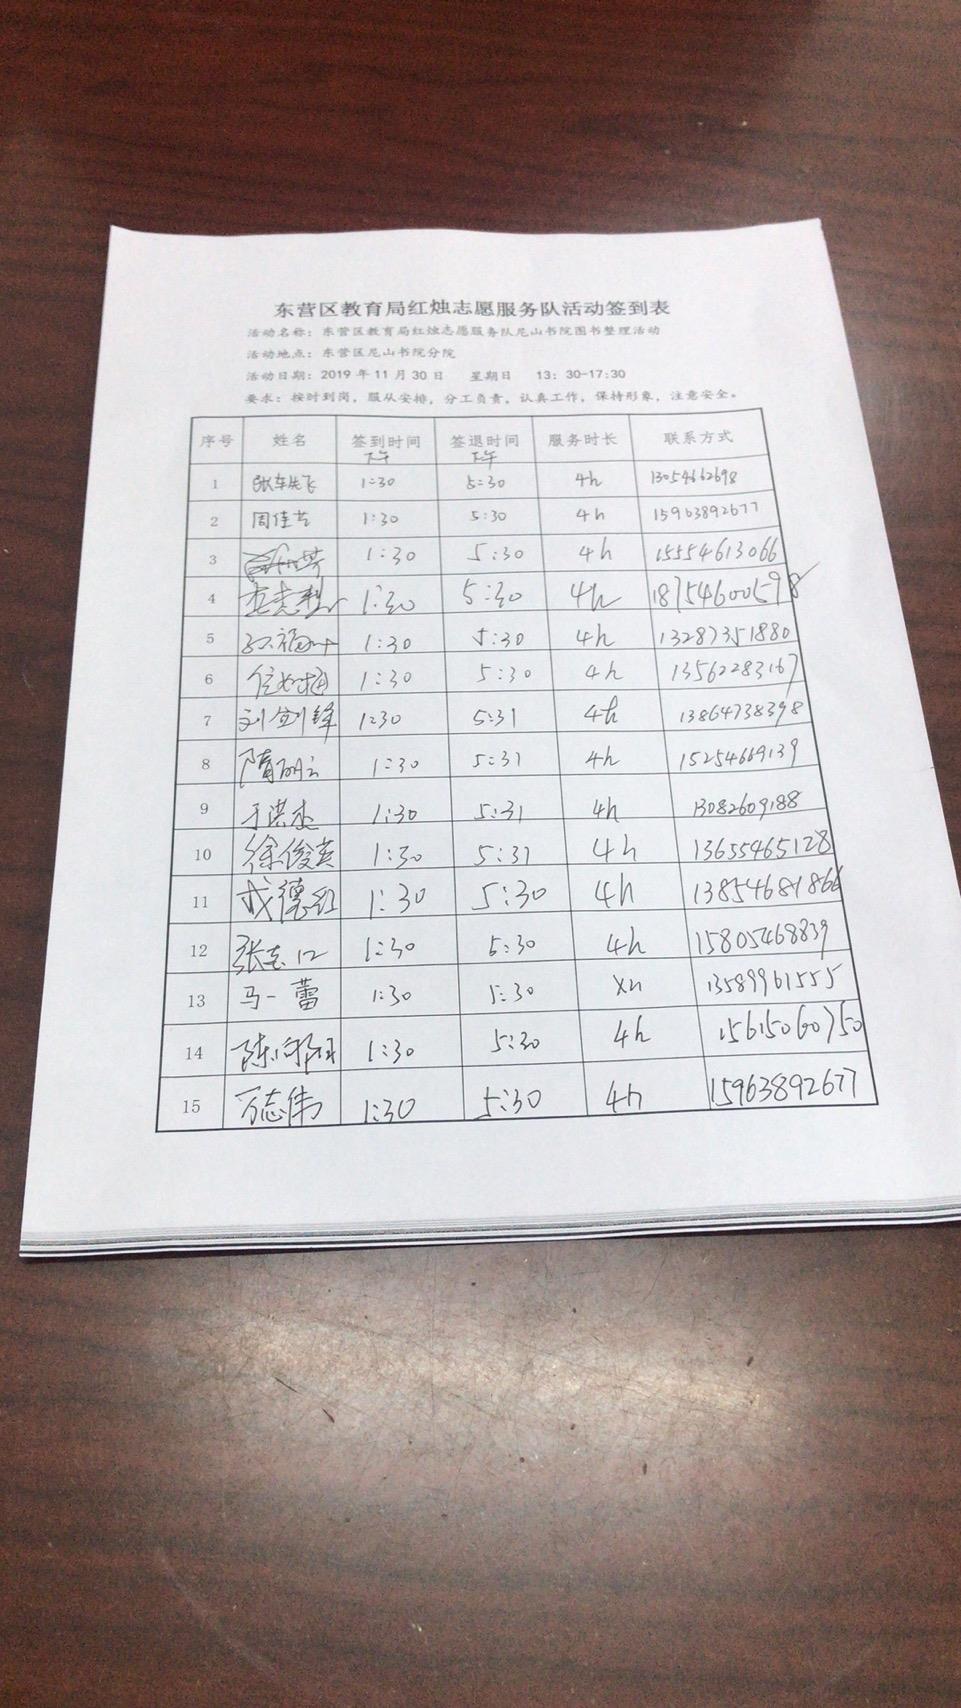 东营区教育局红烛志愿服务队活动签到表
活动名称：东营区教育局红烛志愿服务队尼山书院图书整理活动
活动地点：东营区尼山书院分院
活动日期：2019 年 11 月 30 日 星期日 13：30-17:30
要求：按时到岗，服从安排，分工负责，认真工作，保持形象，注意安全。
序号 姓名 签到时间 签退时间 服务时长 联系方式
下午 下午
1 1:30 5:30 4h 13054662698
2 周佳芸 1:30 5:30 4h 15963892677
3 1:30 5:30 4h 15554613066
4 1:30 5:30 4h 18754600598
5 1:30 5:30 4h 13287351880
6 1:30 5:30 4h 13562283167
7 刘剑锋 1:30 5:31 4h 13864738398
8 隋丽云 1:30 5:31 4h 15254669139
9 于洪杰 1:30 5:31 4h 13082609188
10 徐俊英 1:30 5:31 4h 13655465128
11 成德红 1:30 5:30 4h 13854681866
12 1:30 5:30 4h 15805468839
13 马一蕾 1:30 5:30 13589961555
14 1:30 5:30 4h 15615060750
15 万志伟 1:30 5:30 4h 15963892677